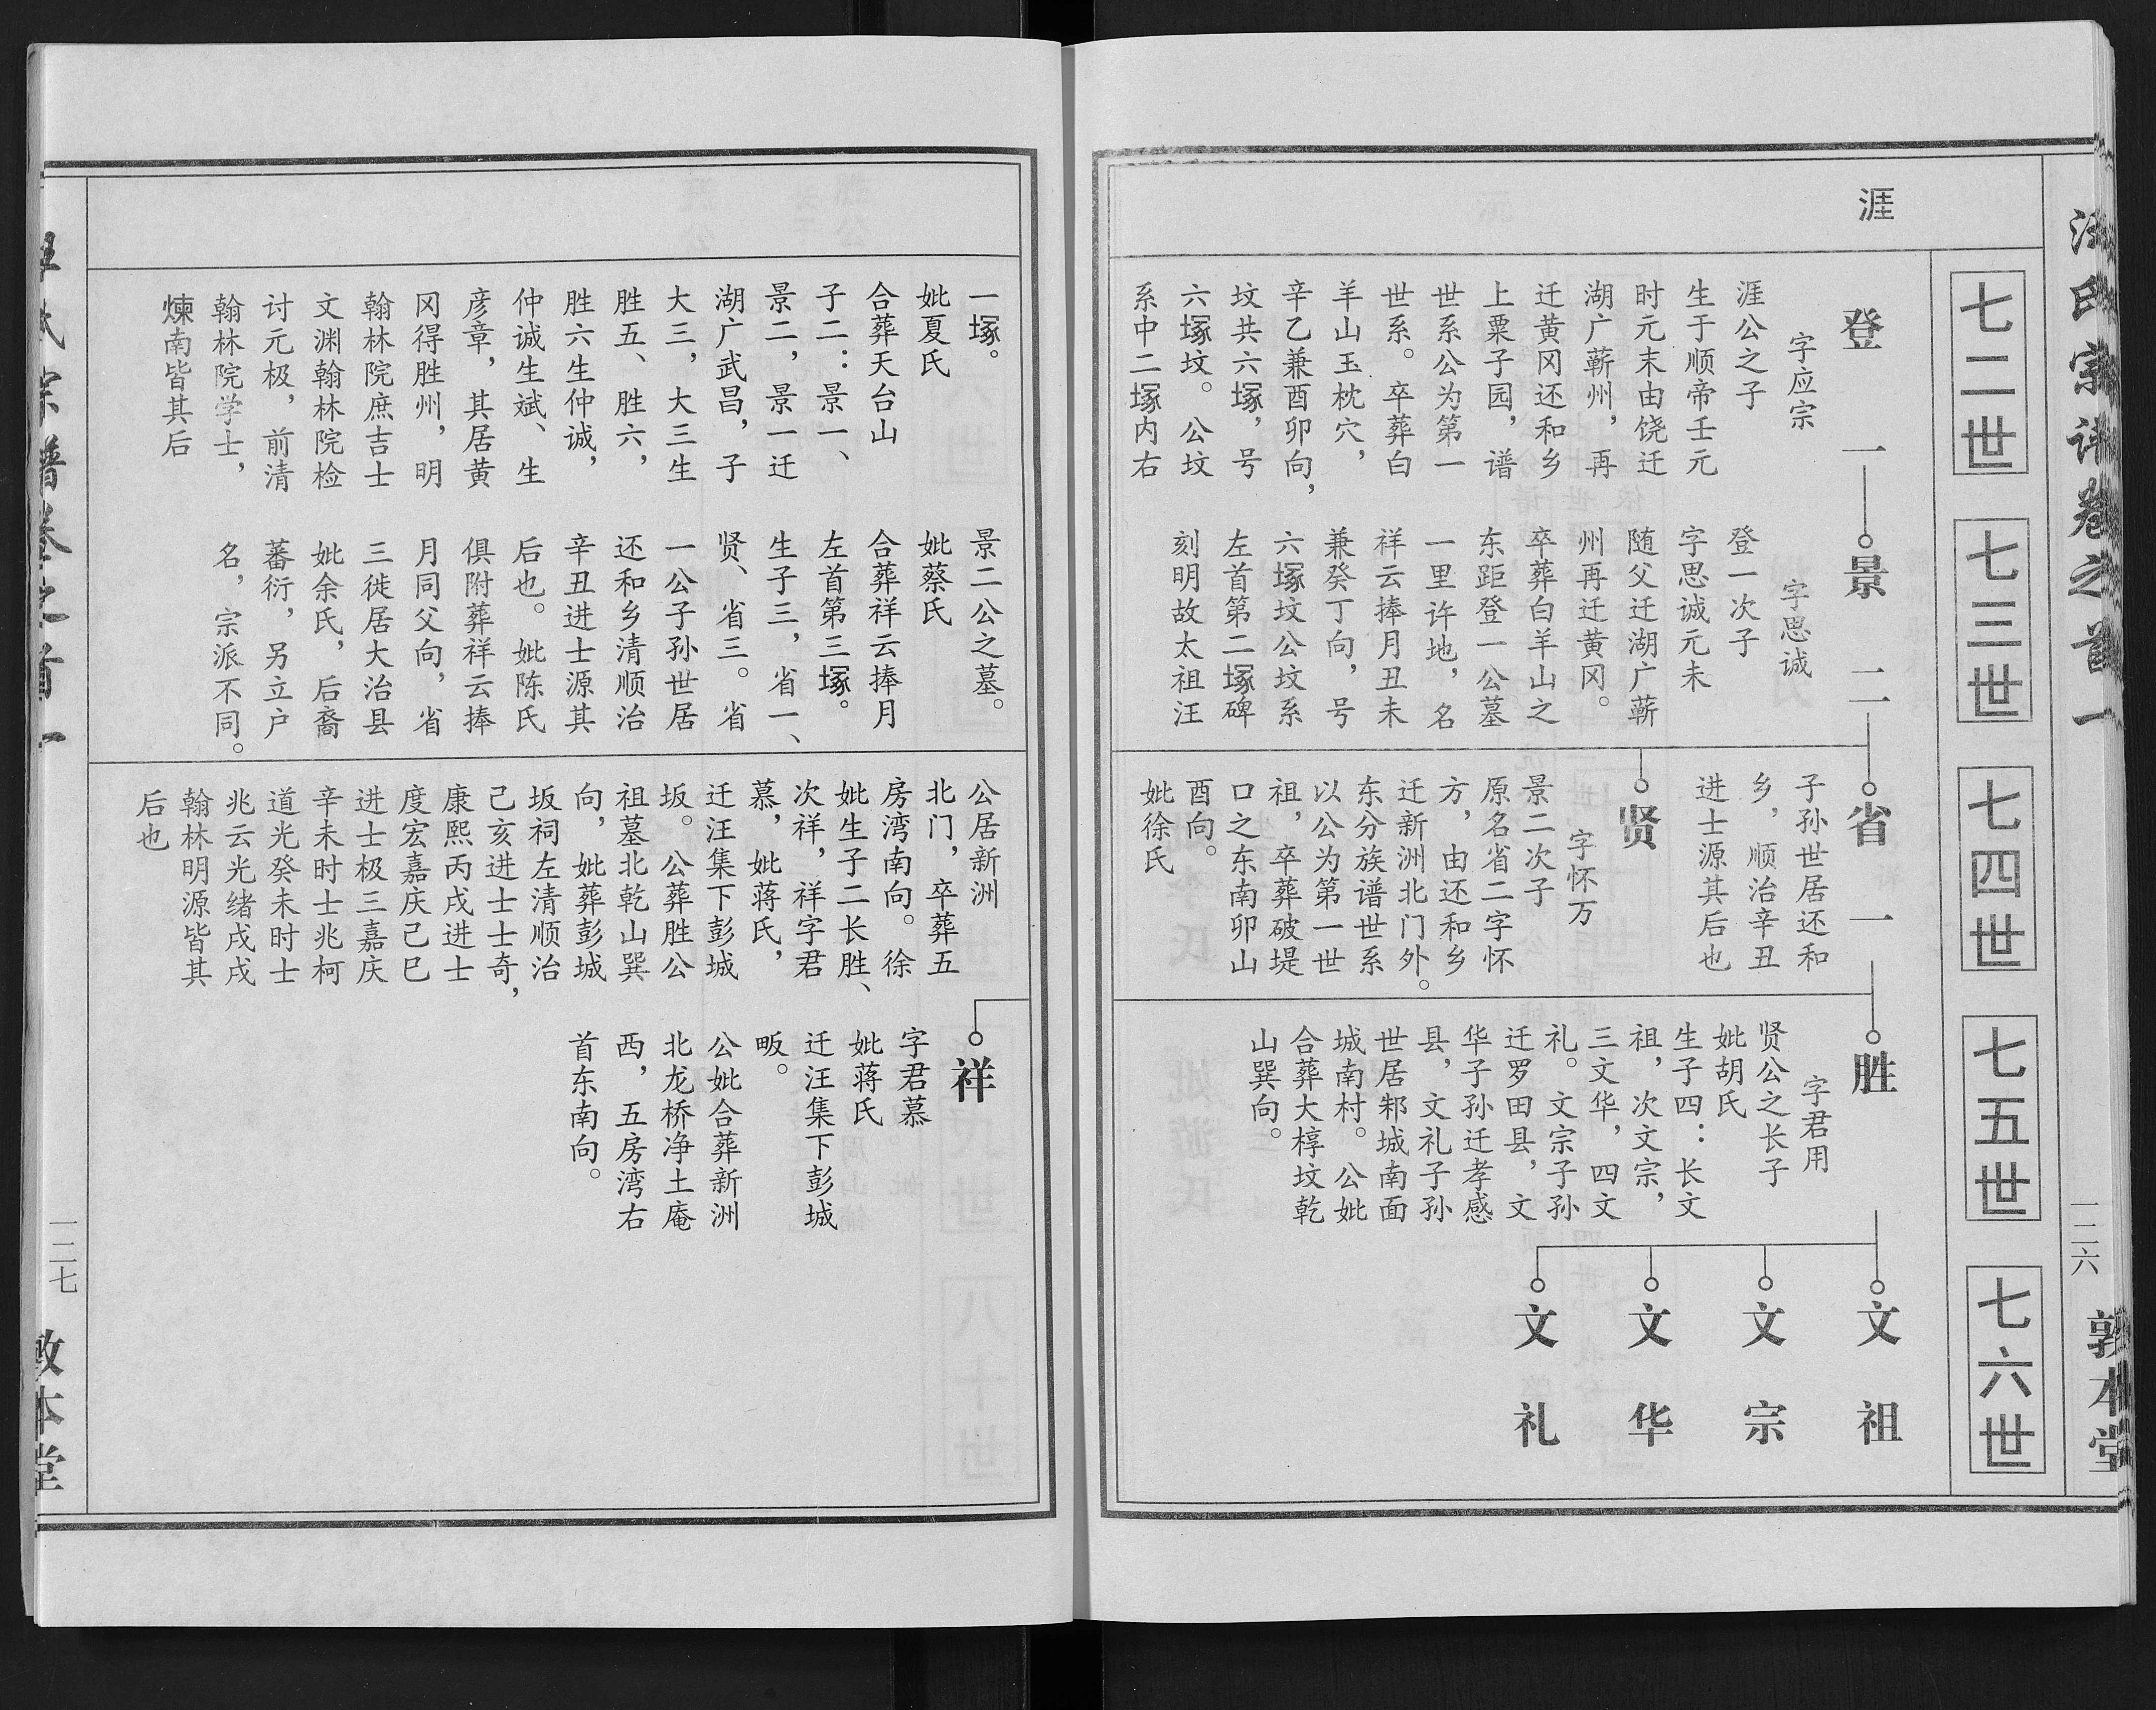 汪氏宗谱卷之首一
一二六
敦本堂
七二世
七三世
七四世
七五世
七六世
涯
登一
字应宗
涯公之子
生于顺帝壬元
时元末由饶迁
湖广蕲州，再
迁黄冈还和乡
上粟子园，谱
世系公为第一
世系。卒葬白
羊山玉枕穴，
辛乙兼酉卯向，
坟共六塚，号
六塚坟。公坟
系中二塚内右
景二
字思诚
登一次子
字思诚元未
随父迁湖广蕲
州再迁黄冈。
卒葬白羊山之
东距登一公墓
一里许地，名
祥云捧月丑未
兼癸丁向，号
六塚坟公坟系
左首第二塚碑
刻明故太祖汪
省一
子孙世居还和
乡，顺治辛丑
进士源其后也
贤
字怀万
景二次子
原名省二字怀
方，由还和乡
迁新洲北门外。
东分族谱世系
以公为第一世
祖，卒葬破堤
口之东南卯山
酉向。
妣徐氏
胜
字君用
贤公之长子
妣胡氏
生子四：长文
祖，次文宗，
三文华，四文
礼。文宗子孙
迁罗田县，文
华子孙迁孝感
县，文礼子孙
世居邾城南面
城南村。公妣
合葬大椁坟乾
山巽向。
文祖
文宗
文华
文礼
一塚。
妣夏氏
合葬天台山
子二：景一、
景二，景一迁
湖广武昌，子
大三，大三生
胜五、胜六，
胜六生仲诚，
仲诚生斌、生
彦章，其居黄
冈得胜州，明
翰林院庶吉士
文渊翰林院检
讨元极，前清
翰林院学士，
煉南皆其后
景二公之墓。
妣蔡氏
合葬祥云捧月
左首第三塚。
生子三，省一、
贤、省三。省
一公子孙世居
还和乡清顺治
辛丑进士源其
后也。妣陈氏
俱附葬祥云捧
月同父向，省
三徙居大治县
妣余氏，后裔
蕃衍，另立户
名，宗派不同。
公居新洲
北门，卒葬五
房湾南向。徐
妣生子二长胜、
次祥，祥字君
慕，妣蒋氏，
迁汪集下彭城
坂。公葬胜公
祖墓北乾山巽
向，妣葬彭城
坂祠左清顺治
己亥进士士奇，
康熙丙戌进士
度宏嘉庆己巳
进士极三嘉庆
辛未时士兆柯
道光癸未时士
兆云光绪戌戌
翰林明源皆其
后也
祥
字君慕
妣蒋氏
迁汪集下彭城
畈。
公妣合葬新洲
北龙桥净土庵
西，五房湾右
首东南向。
氏宗谱卷之首一
一二七
敦本堂